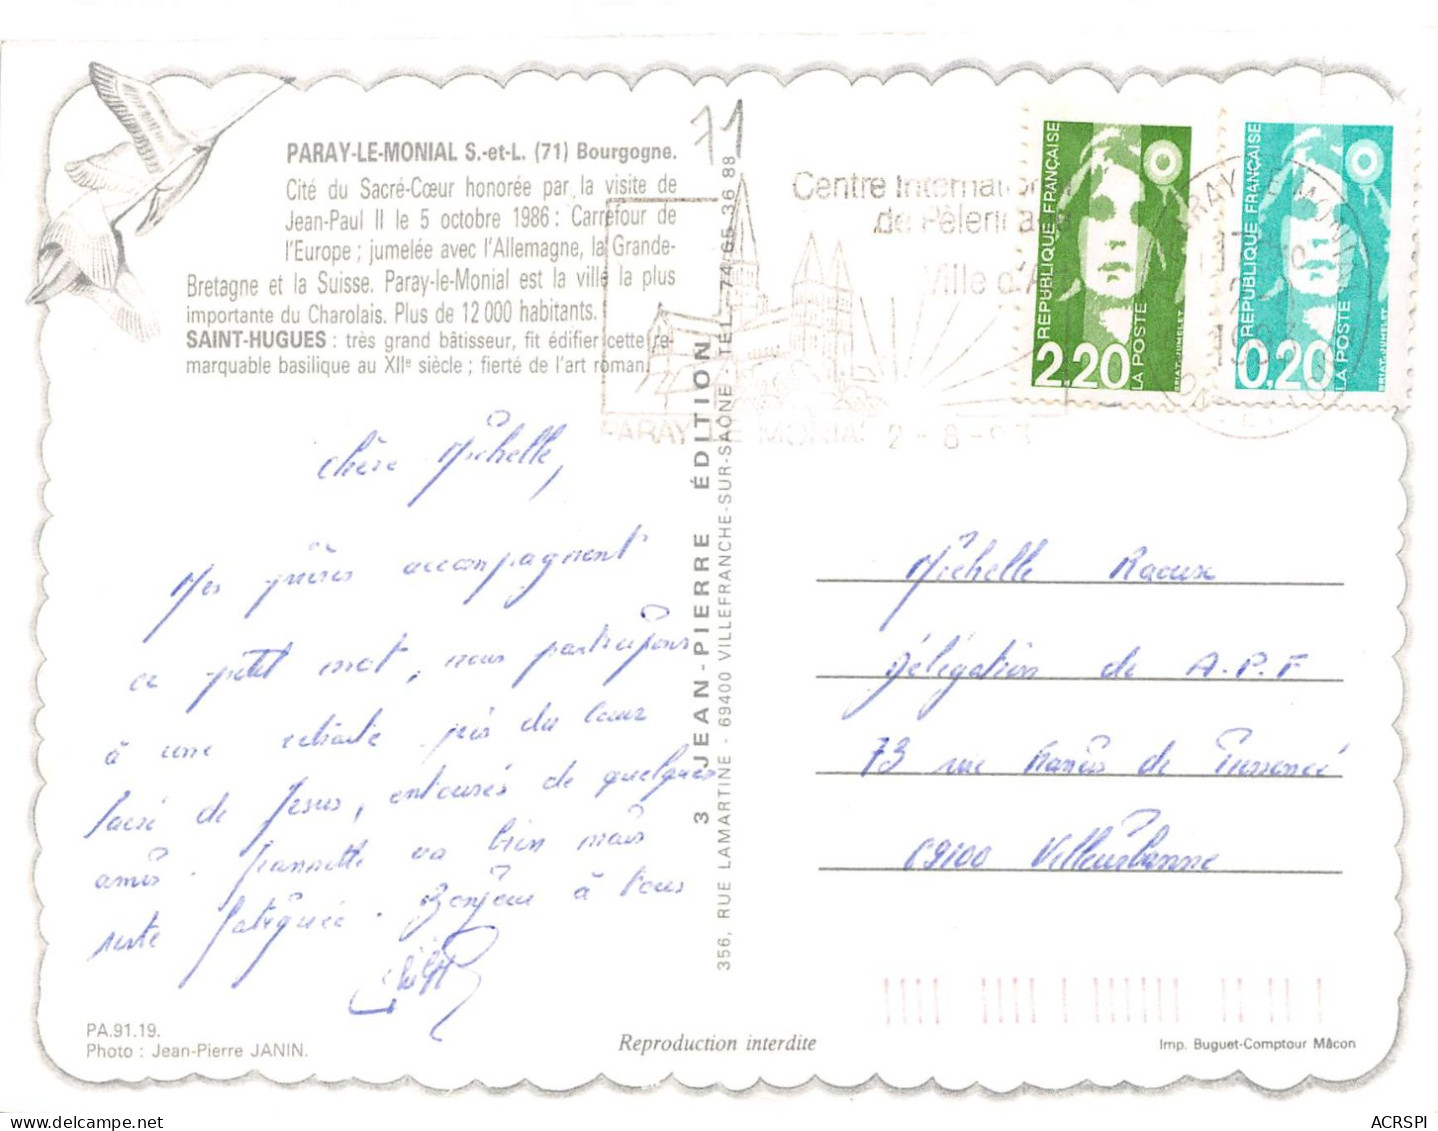 11
PARAY-LE-MONIAL S.-et-L. (71) Bourgogne.
Cité du Sacré-Cœur honorée par la visite de
Jean-Paul II le 5 octobre 1986 : Carrefour de
l'Europe ; jumelée avec l'Allemagne, la Grande-
Bretagne et la Suisse. Paray-le-Monial est la ville la plus
importante du Charolais. Plus de 12 000 habitants.
SAINT-HUGUES : très grand bâtisseur, fit édifier cette re-
marquable basilique au XIIe siècle ; fierté de l'art roman.
Chère Michelle,
Mes prières accompagnent
ce petit mot, nous participons
à une retraite près du Cœur
Sacré de Jésus, entourés de quelques
amis. Jeannette va bien mais
reste fatiguée. Bonjour à tous
PA.91.19.
Photo : Jean-Pierre JANIN.
Reproduction interdite
3 JEAN-PIERRE ÉDITION
356, RUE LAMARTINE - 69400 VILLEFRANCHE-SUR-SAÔNE TÉL. 74 65 36 88
Centre International
de Pèlerinage
Ville d'A
PARAY LE MONIAL 2-8-93
REPUBLIQUE FRANÇAISE
2,20
LA POSTE
BRIAT-JUMELET
REPUBLIQUE FRANÇAISE
0,20
LA POSTE
BRIAT-JUMELET
PARAY LE MONIAL
1993
Michelle Raoux
Délégation de A.P.F
73 rue Francis de Pressensé
69100 Villeurbanne
Imp. Buguet-Comptour Mâcon
ACRSPI